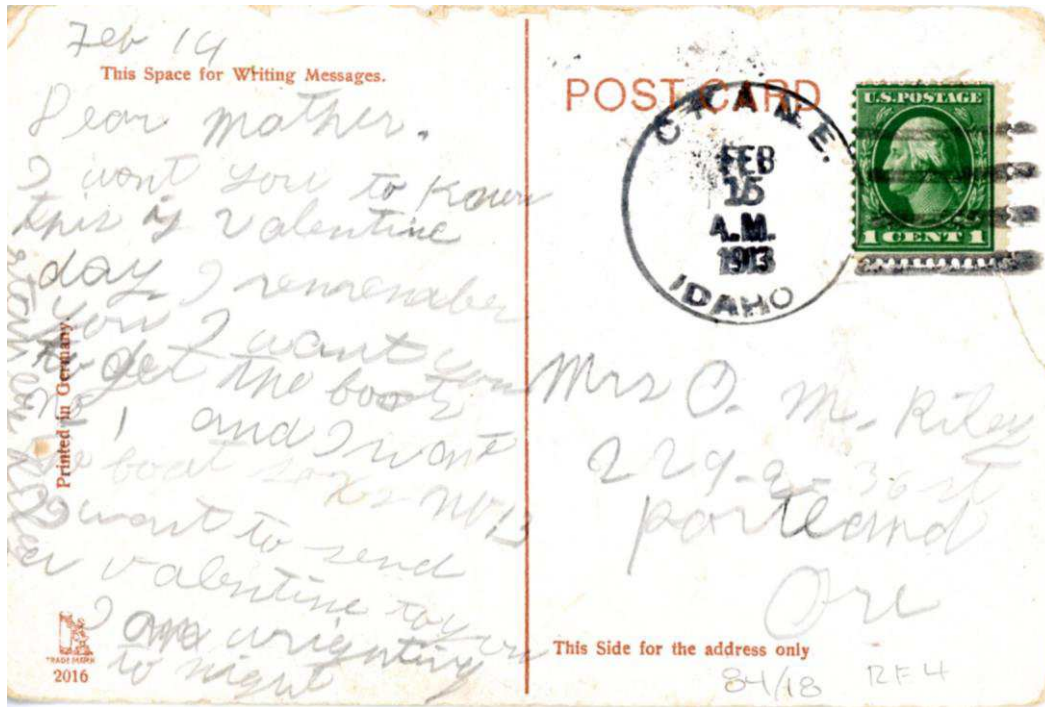 Feb 14
This Space for Writing Messages.
Dear mother.
I wont you to Know
this is valentine
day I remember
you I want you
to get the boots
no 1 and I wont
the boat soxs no 13
I want to send
a valentine to you
I am wrighting
to night
Printed in Germany.
TRADE MARK
2016
POST CARD
CRANE.
FEB
15
A.M.
1913
IDAHO
U.S. POSTAGE
1 CENT 1
Mrs O. M. Riley
229-2-36 st
portland
Ore
This Side for the address only
84/18 RF4